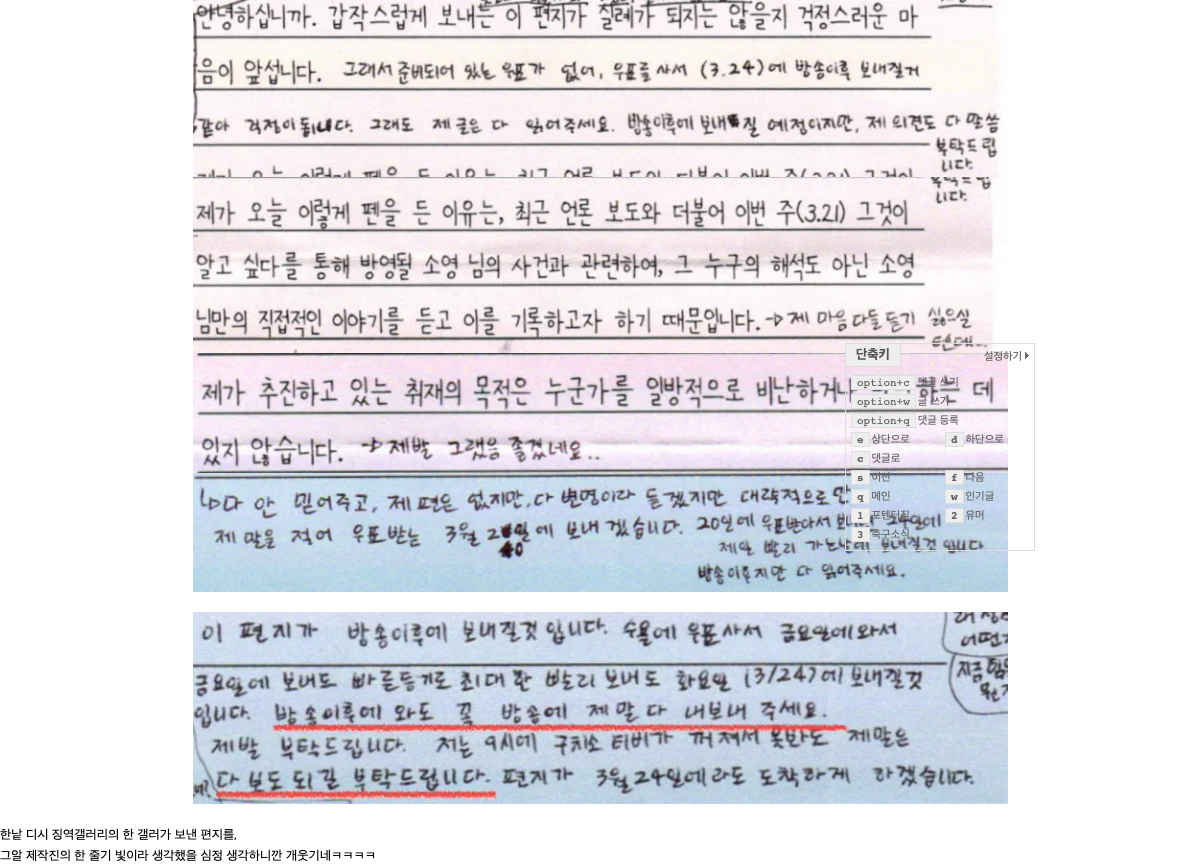 안녕하십니까. 갑작스럽게 보내는 이 편지가 실례가 되지는 않을지 걱정스러운 마
음이 앞섭니다. 그래서 준비되어 있는 우표가 없어, 우표를 사서 (3.24)에 방송이후 보내질거
같아 걱정이 됩니다. 그래도 제 글은 다 읽어주세요. 방송이후에 보내질 예정이지만, 제 의견도 다 말씀
부탁드립
니다.
부탁드립
니다.
제가 오늘 이렇게 펜을 든 이유는, 최근 언론 보도와 더불어 이번 주(3.21) 그것이
알고 싶다를 통해 방영될 소영 님의 사건과 관련하여, 그 누구의 해석도 아닌 소영
님만의 직접적인 이야기를 듣고 이를 기록하고자 하기 때문입니다. → 제 마음 다들 듣기 싫으실
텐데..
제가 추진하고 있는 취재의 목적은 누군가를 일방적으로 비난하거나 하는 데
있지 않습니다. → 제발 그랬음 좋겠네요..
↳ 다 안 믿어주고, 제 편은 없지만, 다 변명이라 듣겠지만 대략적으로만
제 말을 적어 우표받는 3월 20일에 보내겠습니다. 20일에 우표받아서 보내 24일에
제일 빨리 가는날에 보내질것 입니다
방송이후지만 다 읽어주세요.
단축키
설정하기
option+c 댓글 쓰기
option+w 글 쓰기
option+q 댓글 등록
e 상단으로 d 하단으로
c 댓글로
s 이전 f 다음
q 메인 w 인기글
1 포텐터짐 2 유머
3 축구소식
이 편지가 방송이후에 보내질것 입니다. 수욜에 우표사서 금요일에와서
금요일에 보내도 빠른등기로 최대한 빨리 보내도 화요일 (3/24)에 보내질것
입니다. 방송이후에 와도 꼭 방송에 제말 다 내보내 주세요.
제발 부탁드립니다. 저는 9시에 구치소 티비가 꺼져서 못봐도 제말은
다 보도 되길 부탁드립니다. 편지가 3월24일에라도 도착하게 하겠습니다.
어떤
지금
한낱 디시 징역갤러리의 한 갤러가 보낸 편지를,
그알 제작진의 한 줄기 빛이라 생각했을 심정 생각하니깐 개웃기네ㅋㅋㅋㅋ